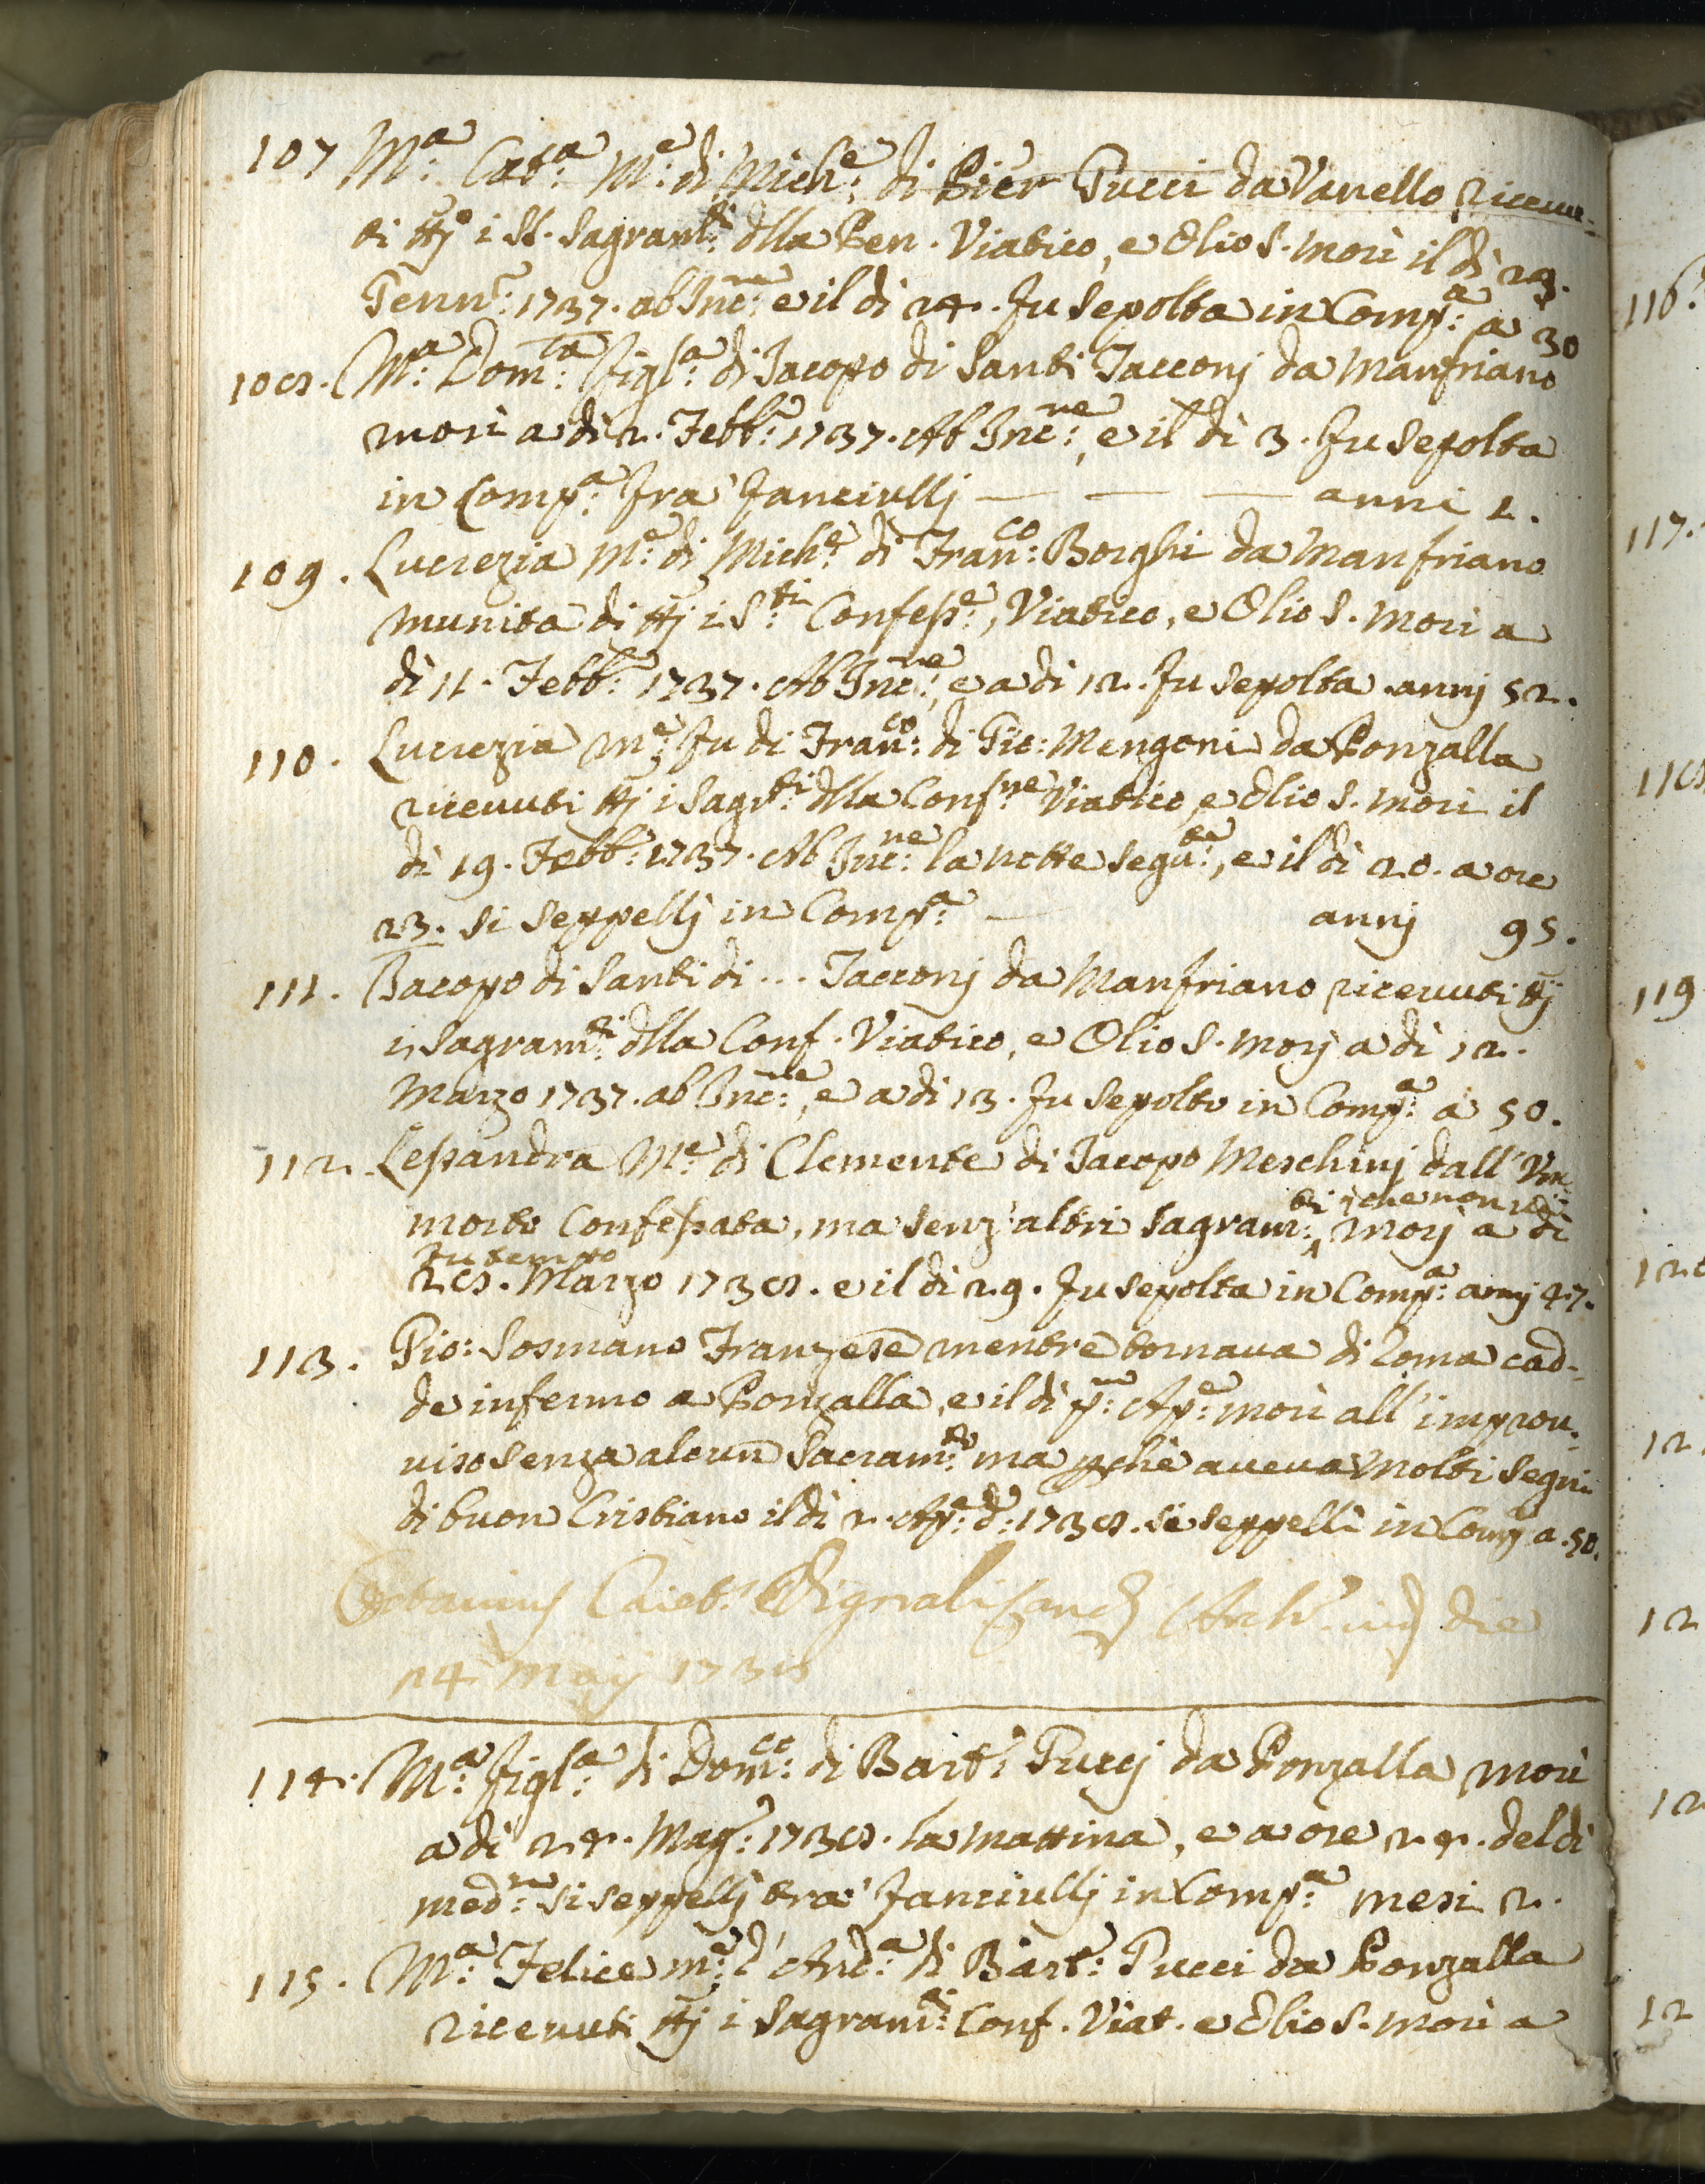 107 M.ª Cat.ª M.e di Mich.e di Pier Pucci da Vanello riceuu-
ti ttj i SS. Sagram.ti dlla Pen. Viatico, e Olio S. morì il dì 23.
Genn.o 1737. ab Inc.ne e il dì 24. fu sepolta in Comp.ª a 30
108. M.ª Dom.ca figl.ª di Jacopo di Santi Tacconj da Manfriano
morì a dì 2. Febb.o 1737. Ab Inc.ne, e il dì 3. fu sepolta
in Comp.ª fra' fanciullj — — — anni 2.
109. Lucrezia M.e di Mich.e di Fran.co Borghi da Manfriano
munita di ttj i S.ti Confess.e, Viatico, e Olio S. morì a
dì 11. Febb.o 1737. Ab Inc.ne, e a dì 12. fu sepolta. annj 52.
110. Lucrezia m.e fu di Fran.co di Gio: Mengoni da Ponzalla
riceuuti ttj i Sagr.ti dlla Conf.ne Viatico, e Olio S. morì il
dì 19. Febb.o 1737. Ab Inc.ne la notte segu.te, e il dì 20. a ore
23. si seppellj in Comp.ª — annj 95.
111. Jacopo di Santi di ... Tacconj da Manfriano riceuuti ttj
i Sagram.ti dlla Conf. Viatico, e Olio S. morj a dì 12.
Marzo 1737. ab Inc.ne, e a dì 13. fu sepolto in Comp.ª a 50.
112. Lessandra M.e di Clemente di Jacopo Meschinj dall'
morbo Confessata, ma senz'altri Sagram.ti, che non ui morj a dì
fu tempo
28. Marzo 1738. e il dì 29. fu sepolta in Comp.ª annj 47.
113. Gio: Sosmano Franzese mentre tornaua di Roma cad-
de infermo a Ponzalla, e il dì p.mo Ap.e morì all'improu-
uiso senza alcun Sacram.to ma pchè aueua molti segni
di buon Cristiano il dì 2. Ap.e d.o 1738. si seppellì in Comp.ª a. 50.
die
24 Maij 1738
114. M.ª figl.ª di Dom.co di Bart.o Puccj da Ponzalla morì
a dì 24. Mag.o 1738. la mattina, e a ore 24. del dì
med.mo si seppellj tra' fanciullj in Comp.ª mesi 2.
115. M.ª Felice m.e d'And.ª di Bart.o Pucci da Ponzalla
riceuuti ttj i Sagram.ti Conf. Viat. e Olio S. morì a
116.
117.
118
119